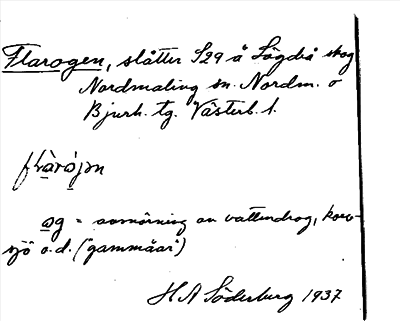 Flarogen, slåtter S29 å Lögdeå skog
Nordmaling sn. Nordm. o
Bjurh. tg. Västerb. l.
flàrójən
og = avmörning av vattendrag, korv-
sjö o.d. ("gammåar")
H A Söderburg 1937